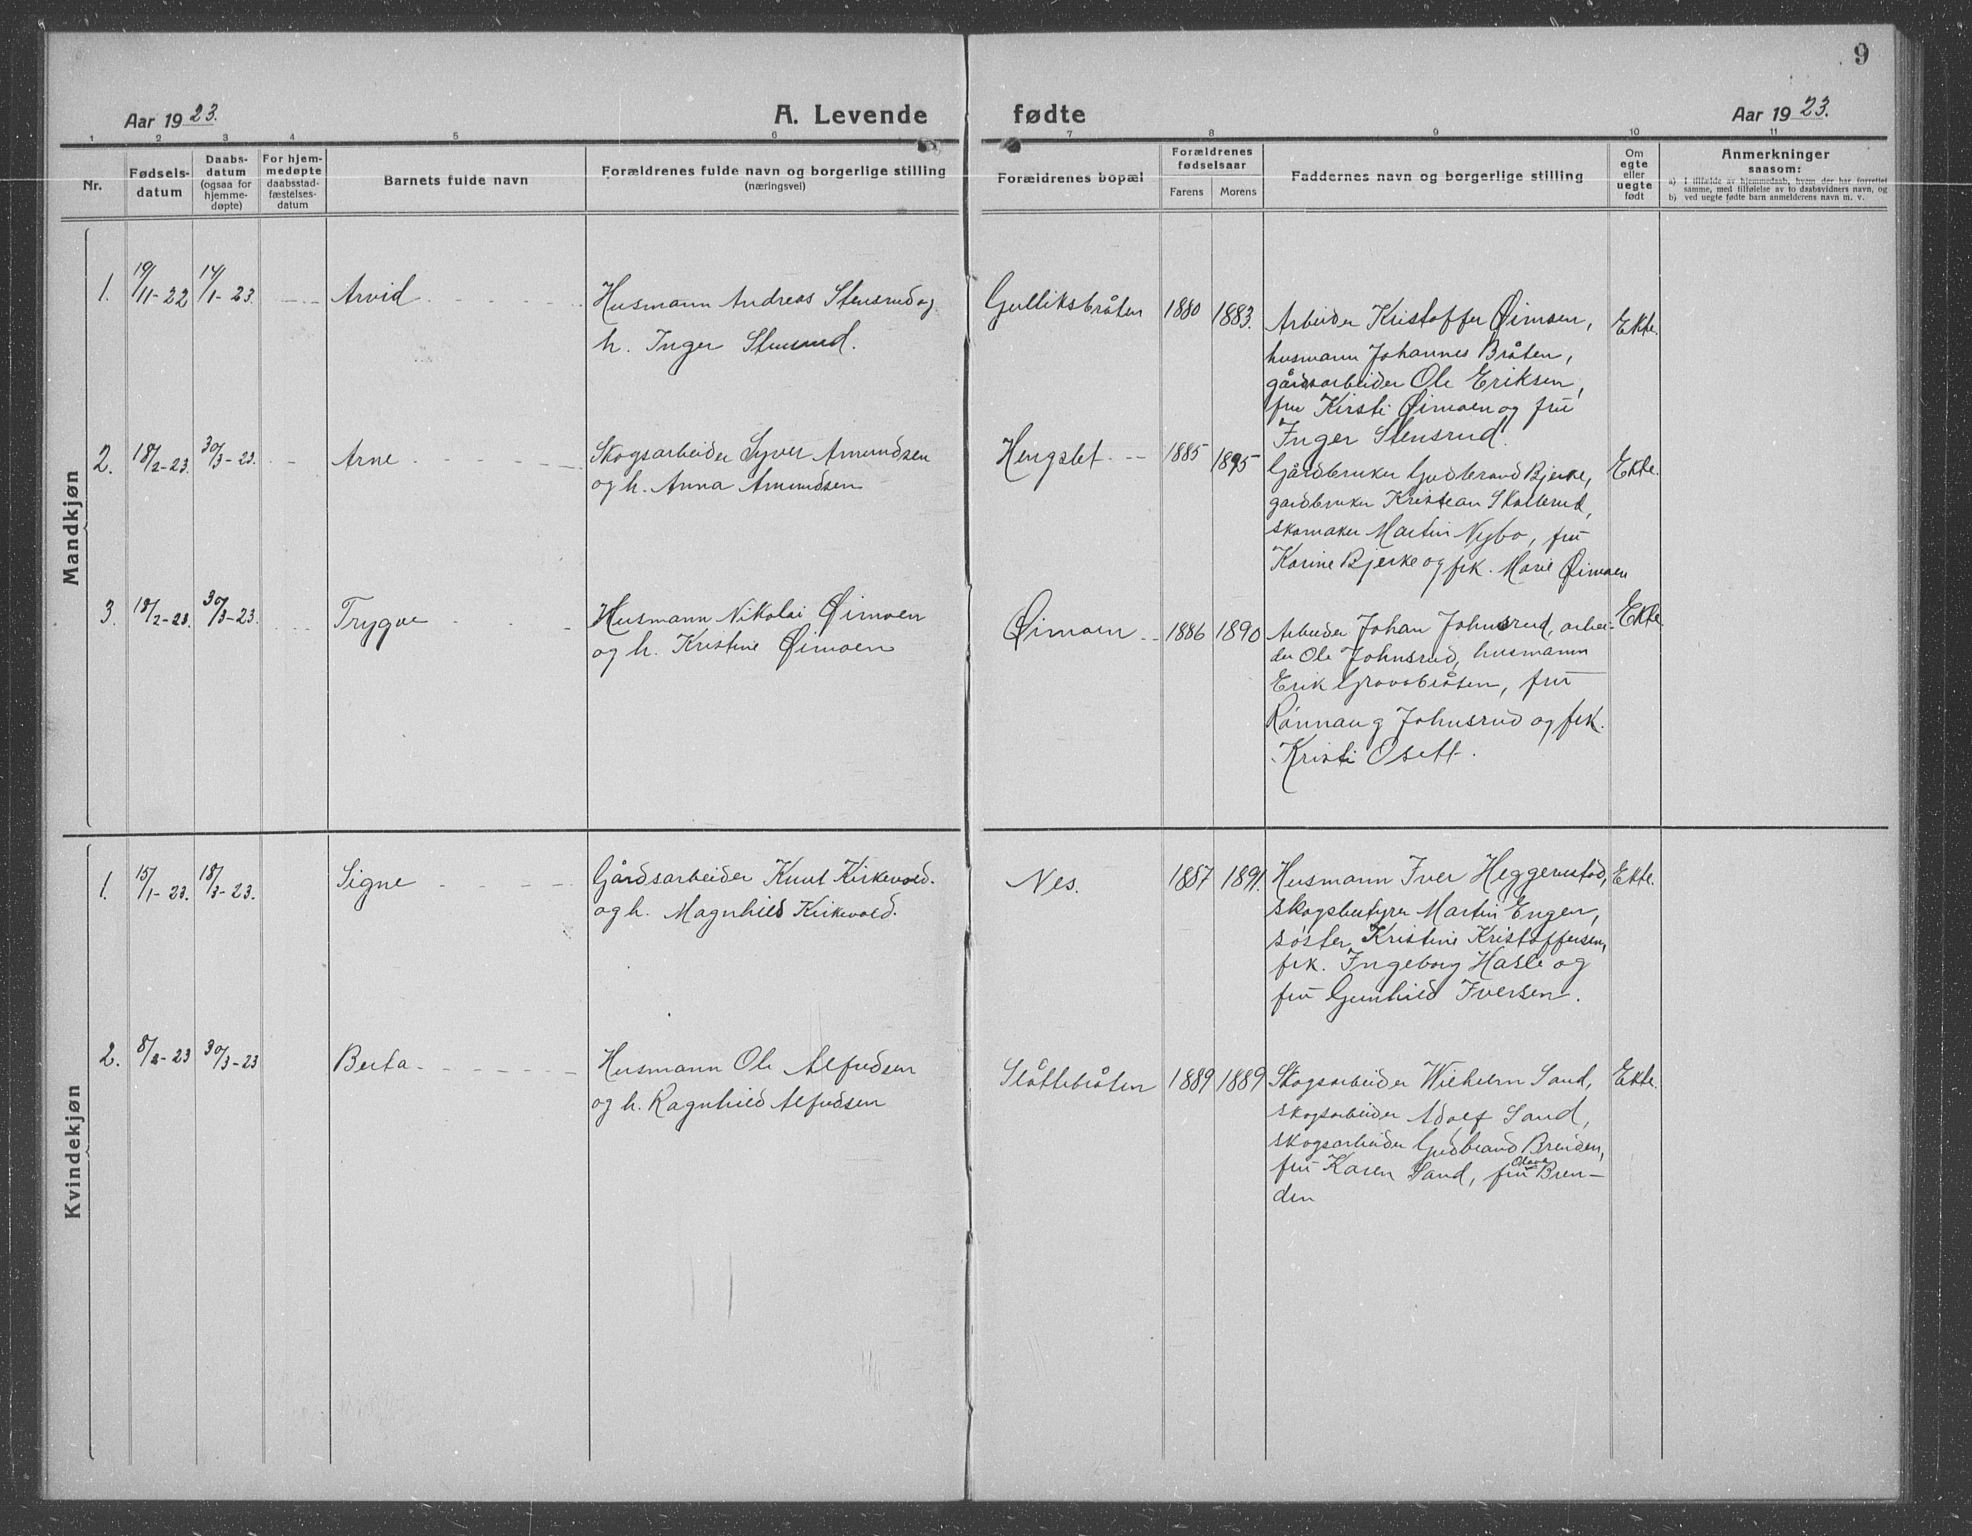 9
Aar 1923.
A. Levende fødte
Aar 1923.
1 2 3 4 5 6 7 8 9 10 11
Nr.
Fødsels-
datum
Daabs-
datum
(ogsaa for
hjemme-
døpte)
For hjem-
medøpte
daabsstad-
fæstelses-
datum
Barnets fulde navn
Forældrenes fulde navn og borgerlige stilling
(næringsvei)
Forældrenes bopæl
Forældrenes
fødselsaar
Farens Morens
Faddernes navn og borgerlige stilling
Om
egte
eller
uegte
født
Anmerkninger
saasom:
a) I tilfælde av hjemmedaab, hvem der har forrettet
samme, med tilføielse av to daabsvidners navn, og
b) ved uegte fødte barn anmelderens navn m. v.
Mandkjøn
1. 19/11-22 14/1-23. Arvid
Husmann Andreas Stensrud og
h. Inger Stensrud.
Gulliksbråten 1880 1883.
Arbeider Kristoffer Øimoen,
husmann Johannes Bråten,
gårdsarbeider Ole Eriksen,
fru Kirsti Øimoen og fru
Inger Stensrud.
Ekte.
2. 18/2-23. 30/3-23. Arne
Skogsarbeider Syver Amundsen
og h. Anna Amundsen
Hengslet 1885 1895
Gårdbruker Gudbrand Bjerke,
gardbruker Kristian Skollerud,
skomaker Martin Nybo, fru
Karine Bjerke og frk. Marie Øimoen
Ekte.
3. 18/2-23. 30/3-23. Trygve
Husmann Nikolai Øimoen
og h. Kristine Øimoen
Øimoen 1886 1890
Arbeider Johan Johnsrud, arbei-
der Ole Johnsrud, husmann
Erik Gravabråten, fru
Rønnaug Johnsrud og frk.
Kristi Osett.
Ekte.
Kvindekjøn
1. 15/1-23. 18/3-23. Signe
Gårdsarbeider Knut Kirkevold.
og h. Magnhild Kirkevold.
Nes. 1887 1891.
Husmann Iver Heggerustad,
skogsbestyrer Martin Engen,
søster Kristine Kristoffersen,
frk. Ingeborg Hasle og
fru Gunhild Iversen.
Ekte.
2. 8/2-23 30/3-23 Berta
Husmann Ole Alfredsen
og h. Ragnhild Alfredsen
Slåttebråten 1889 1889
Skogsarbeider Wilhelm Sand,
skogsarbeider Adolf Sand,
skogsarbeider Gudbrand Brenden,
fru Karen Sand, fru Olava Bren-
den
Ekte.